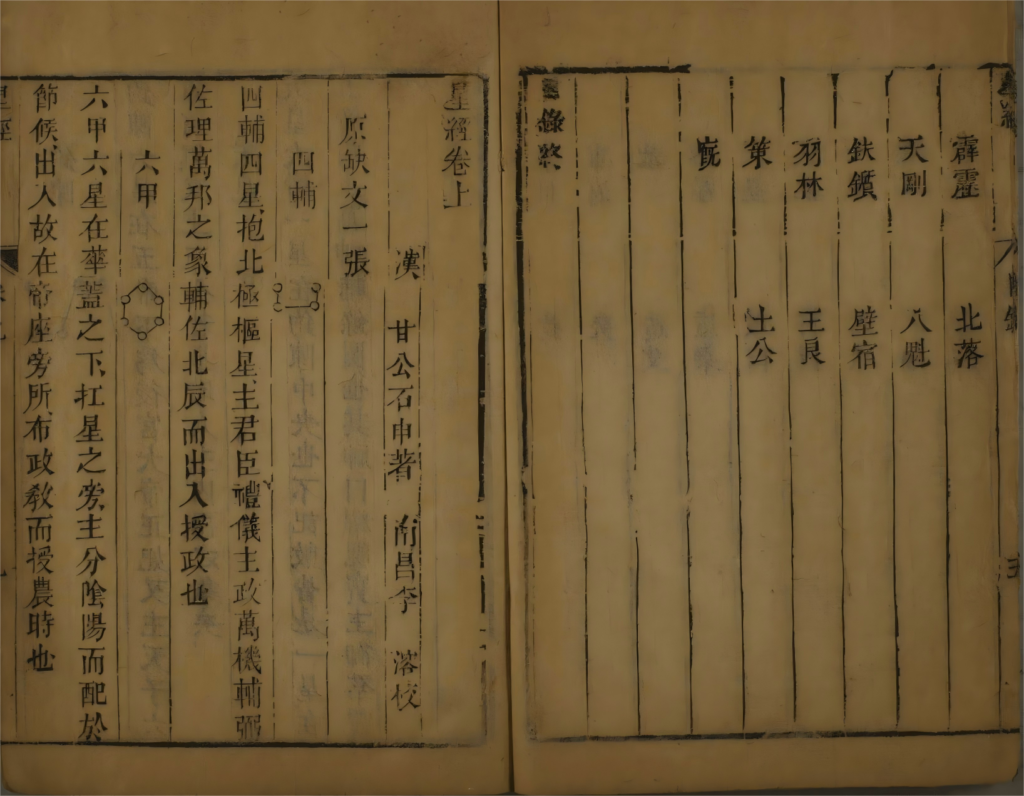 霹靂 北落
天剛 八魁
鈇鑕 壁宿
羽林 王良
策 土公
廐
目錄終
星經卷上
漢 甘公石申著 南昌李 溶校
原缺文一張
四輔
四輔四星抱北極樞星主君臣禮儀主政萬機輔弼
佐理萬邦之象輔佐北辰而出入授政也
六甲
六甲六星在華蓋之下扛星之旁主分陰陽而配於
節候出入故在帝座旁所布政教而授農時也
星經